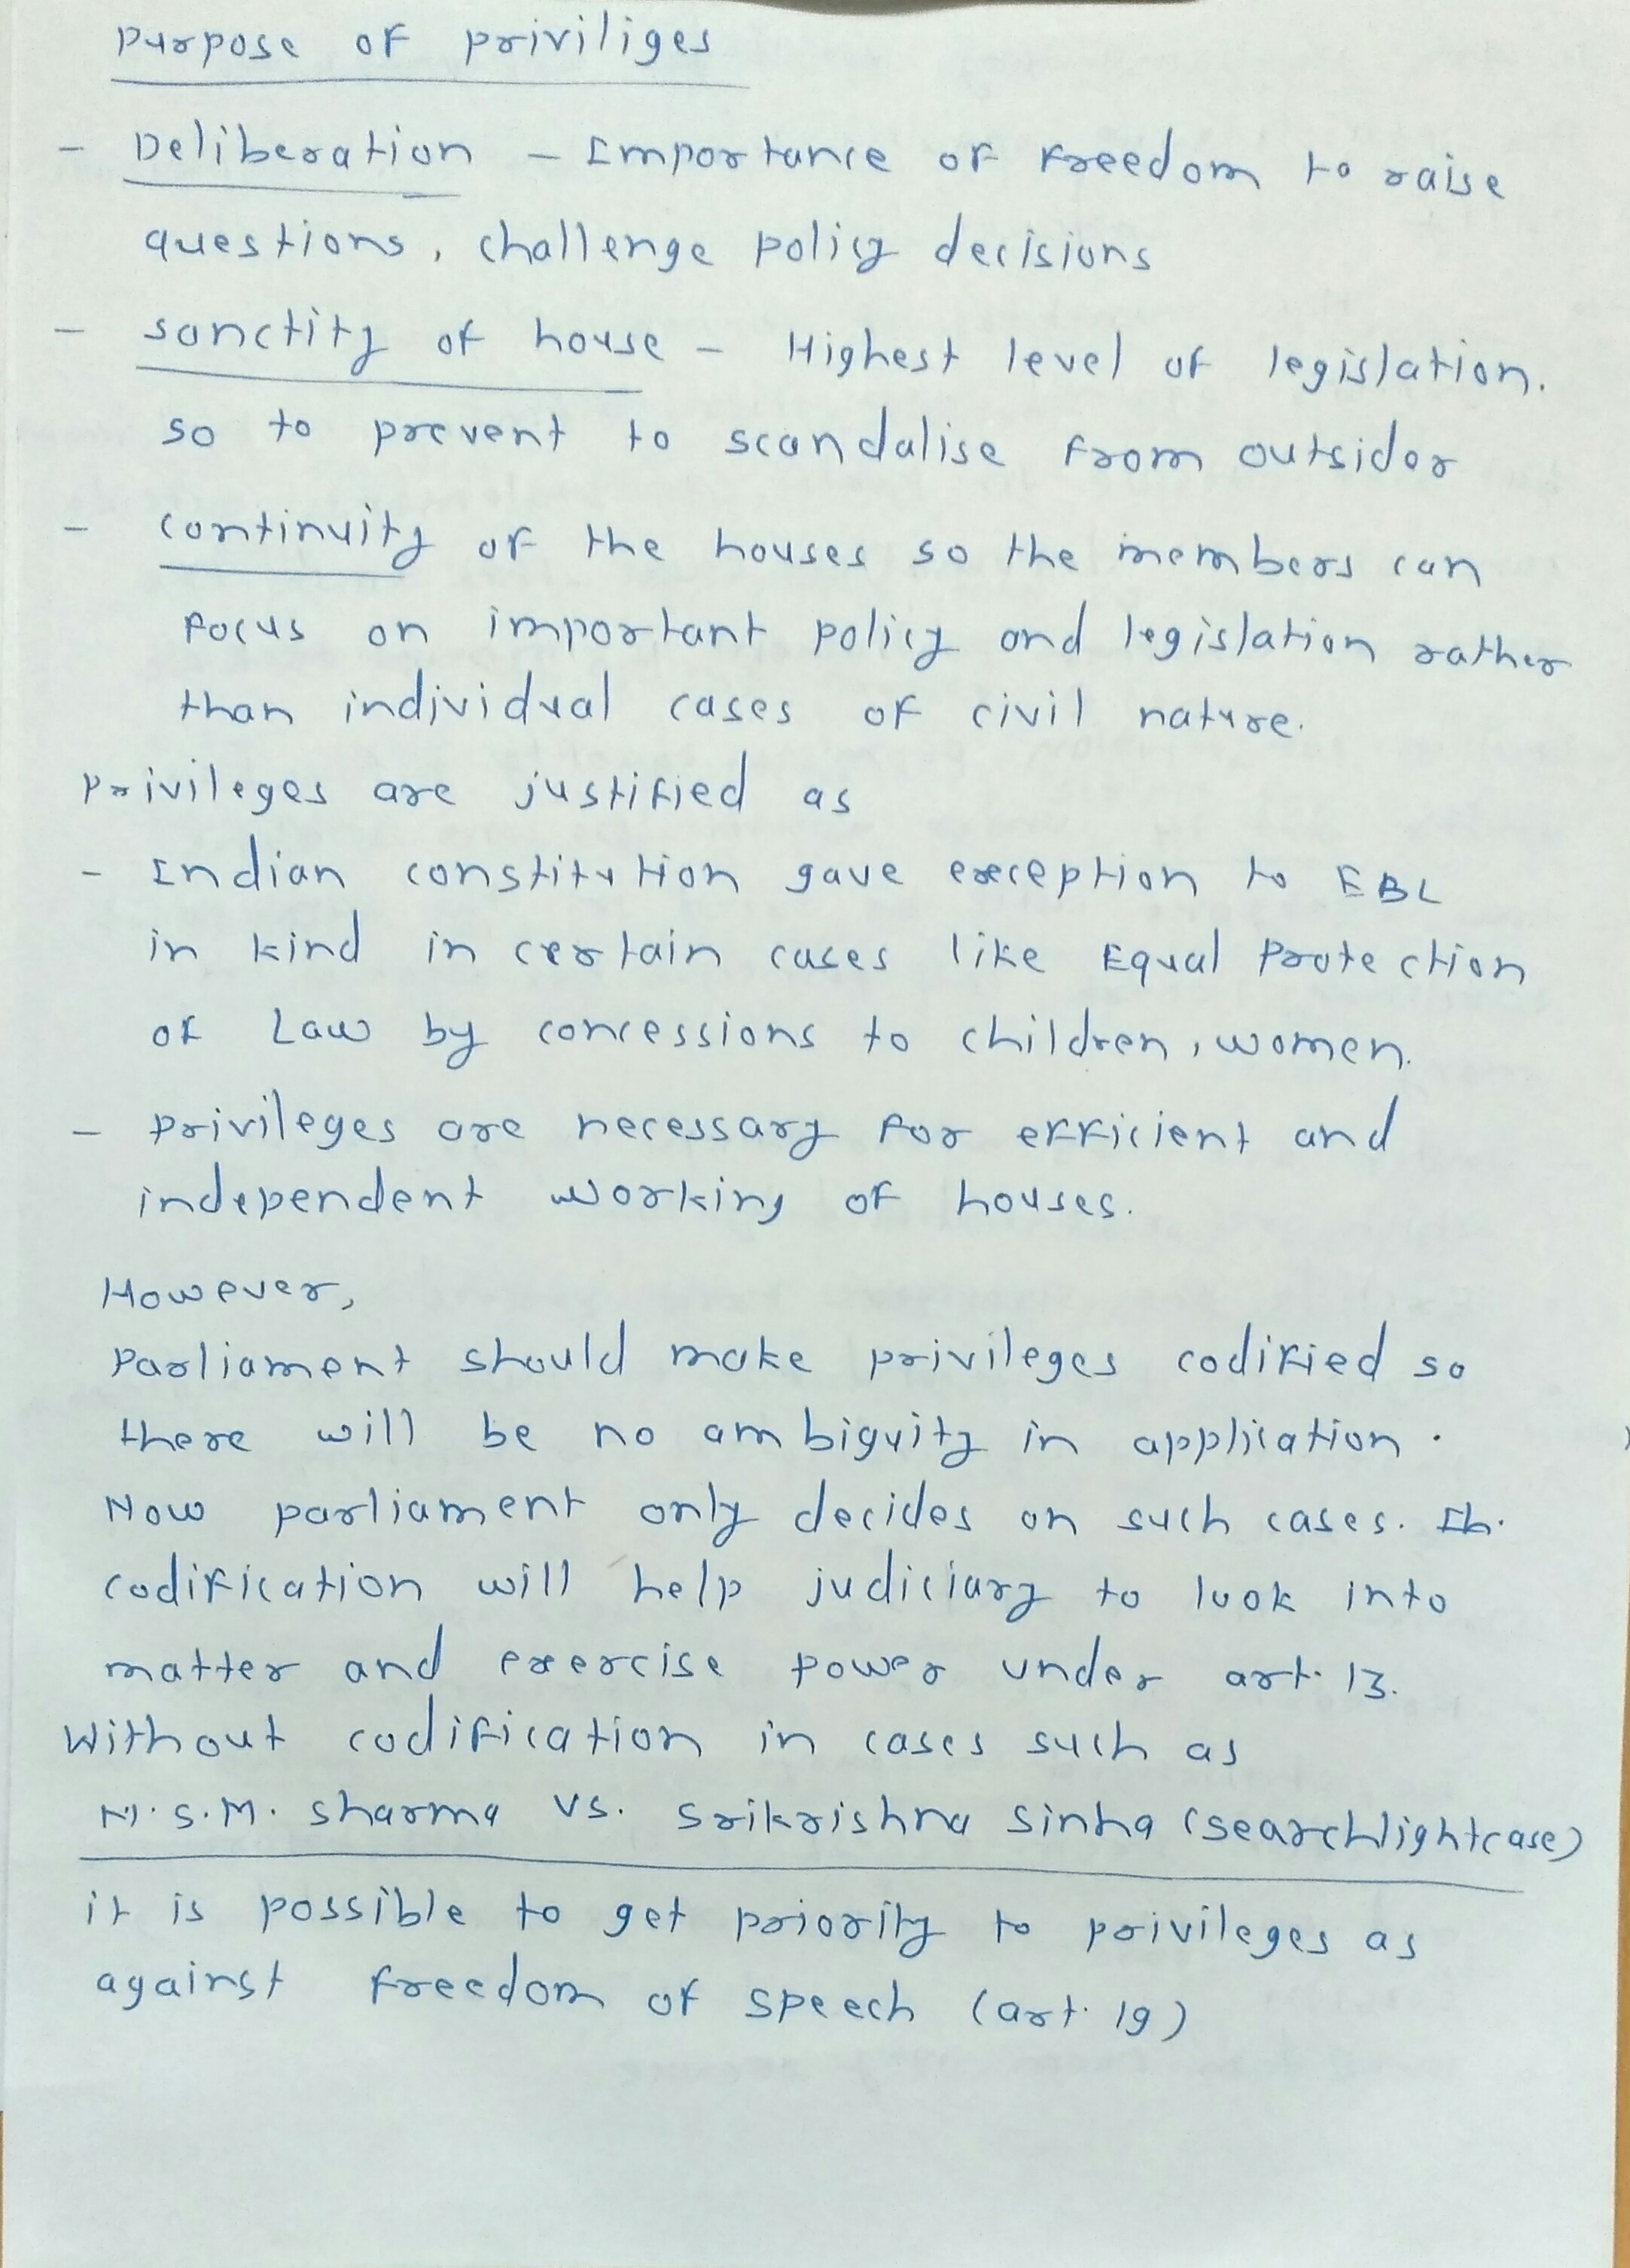 Purpose of priviliges
- Deliberation - Importance of freedom to raise
questions, challenge policy decisions
- sanctity of house - Highest level of legislation.
so to prevent to scandalise from outsider
- continuity of the houses so the members can
focus on important policy and legislation rather
than individual cases of civil nature.
Privileges are justified as
- Indian constitution gave exception to EBL
in kind in certain cases like Equal Protection
of Law by concessions to children, women.
- privileges are necessary for efficient and
independent working of houses.
However,
Parliament should make privileges codified so
there will be no ambiguity in application.
Now parliament only decides on such cases.
codification will help judiciary to look into
matter and exercise power under art. 13.
Without codification in cases such as
M.S.M. sharma vs. Srikrishna Sinha (searchlight case)
it is possible to get priority to privileges as
against freedom of speech (art. 19)